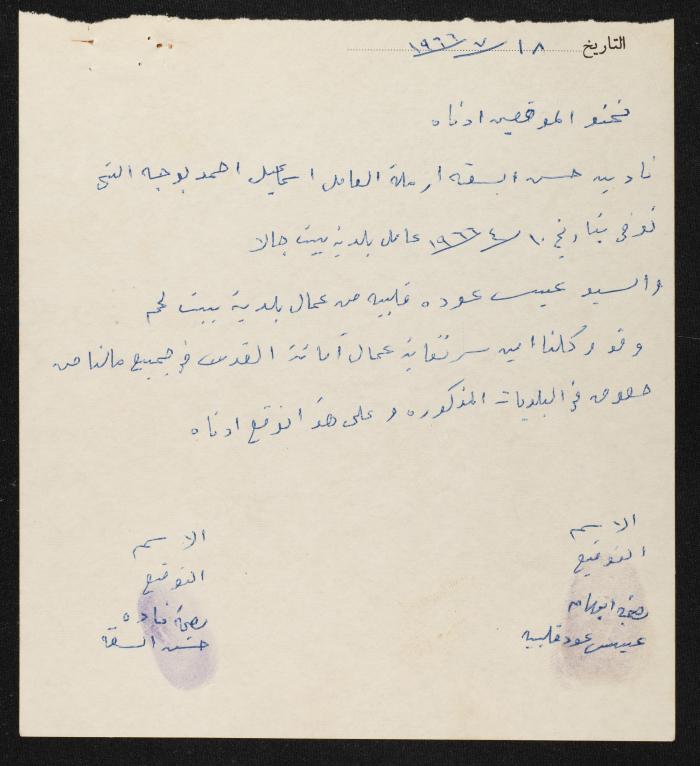 التاريخ ١٨/٧/١٩٦٦
نحنو الموقعين ادناه
ناديه حسن السقه ارملة العامل اسماعيل احمد بوجه التي
توفى بتاريخ ١٠/٤/١٩٦٦ عامل بلدية بيت جالا
والسيد عيسى عوده قلبيه من عمال بلدية بيت لحم
وقد وكلنا امين سر نقابة عمال أمانة القدس في جميع مالنا من
حقوق في البلديات المذكوره وعلى هذا نوقع ادناه
الاسم
التوقيع
بصمة ابهام
عيسى عوده قلبيه
الاسم
التوقيع
بصمة ناده
حسن السقه